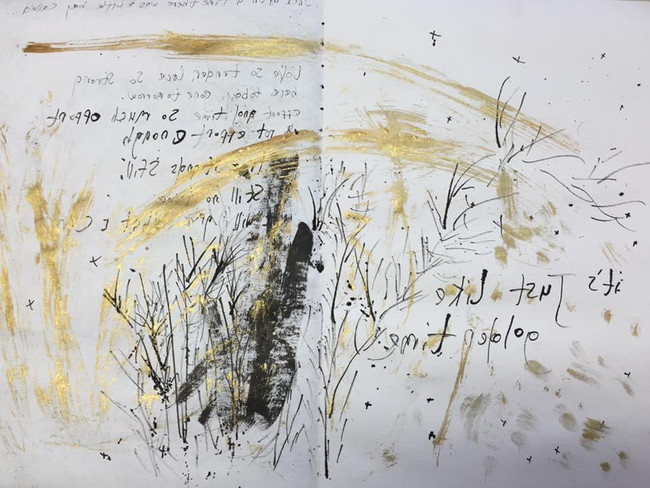 Once upon a time there was a little boy called...
Love so tender, Love so strong
here today, gone tomorrow.
effort and time so much effort
is it effort enough
still
still no
still
it's Just Like
golden time